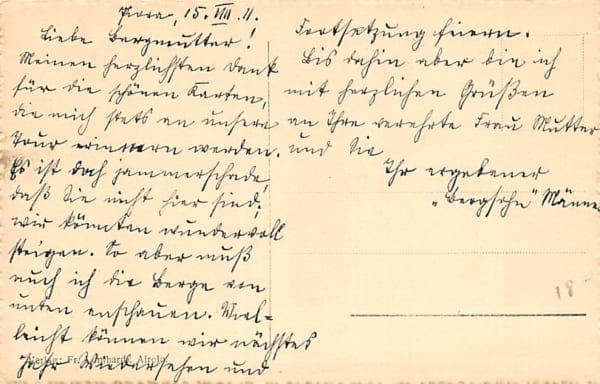 Piora, 15. VIII. 11.
Liebe Bergmutter!
Meinen herzlichsten Dank
für die schönen Karten,
die mich stets an unsere
Tour erinnern werden.
Es ist doch jammerschade,
daß Sie nicht hier sind;
wir könnten wundervoll
steigen. So aber muß
auch ich die Berge von
unten anschauen. Viel-
leicht können wir nächstes
Jahr Wiedersehen und
Fortsetzung feiern.
Bis dahin aber bin ich
mit herzlichen Grüßen
an Ihre verehrte Frau Mutter
und Sie
Ihr ergebener
„Bergsohn"
Verlag: Fr. Lombardi, Airolo
18